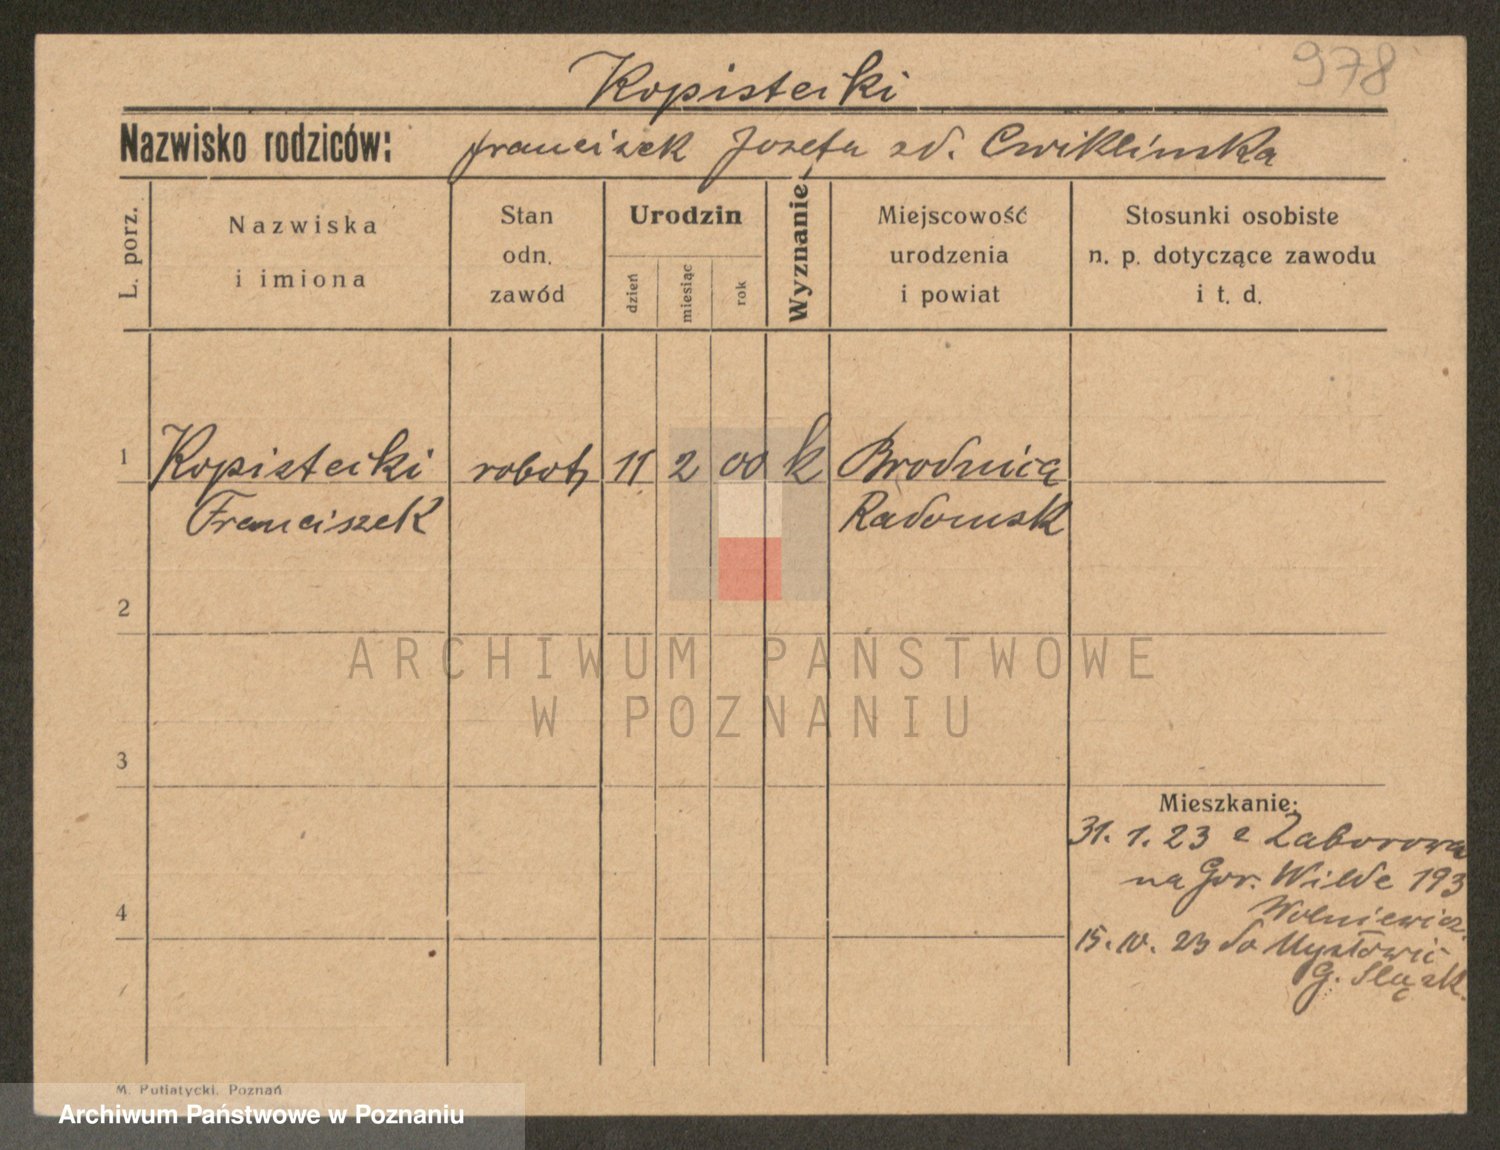 978
Kopisteiki
Nazwisko rodziców: Franciszek Józefa zd. Cwiklinska
L. porz.
Nazwiska
i imiona
Stan
odn.
zawód
Urodzin
dzień
miesiąc
rok
Wyznanie
Miejscowość
urodzenia
i powiat
Stosunki osobiste
n. p. dotyczące zawodu
i t. d.
1 Kopisteiki robotn 11 2 00 k Brodnica
Franciszek Radomsk
2
3
Mieszkanie:
31. 1. 23 z Zaborowa
na Gór. Wilde 193
4
Wolniewicz.
15. IV. 23 do Mysłowic
G. Śląsk.
M. Putiatycki, Poznań
ARCHIWUM PAŃSTWOWE
W POZNANIU
Archiwum Państwowe w Poznaniu